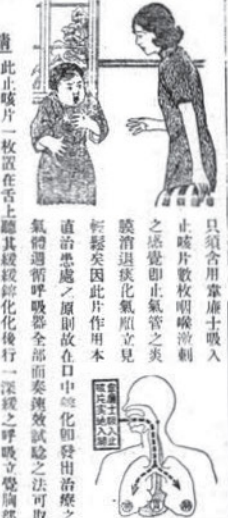 只須含用韋廉士吸入
止咳片數枚咽喉激刺
之感覺即止氣管之炎
膜消退痰化氣順立見
輕鬆矣因此片作用本
直治患處之原則故在口中鎔化卽發出治療之
氣體週循呼吸器全部而奏速效試驗之法可取
此止咳片一枚置在舌上聽其緩緩鎔化化後行一深緩之呼吸立覺胸部
韋廉士吸入止
咳片實地入肺